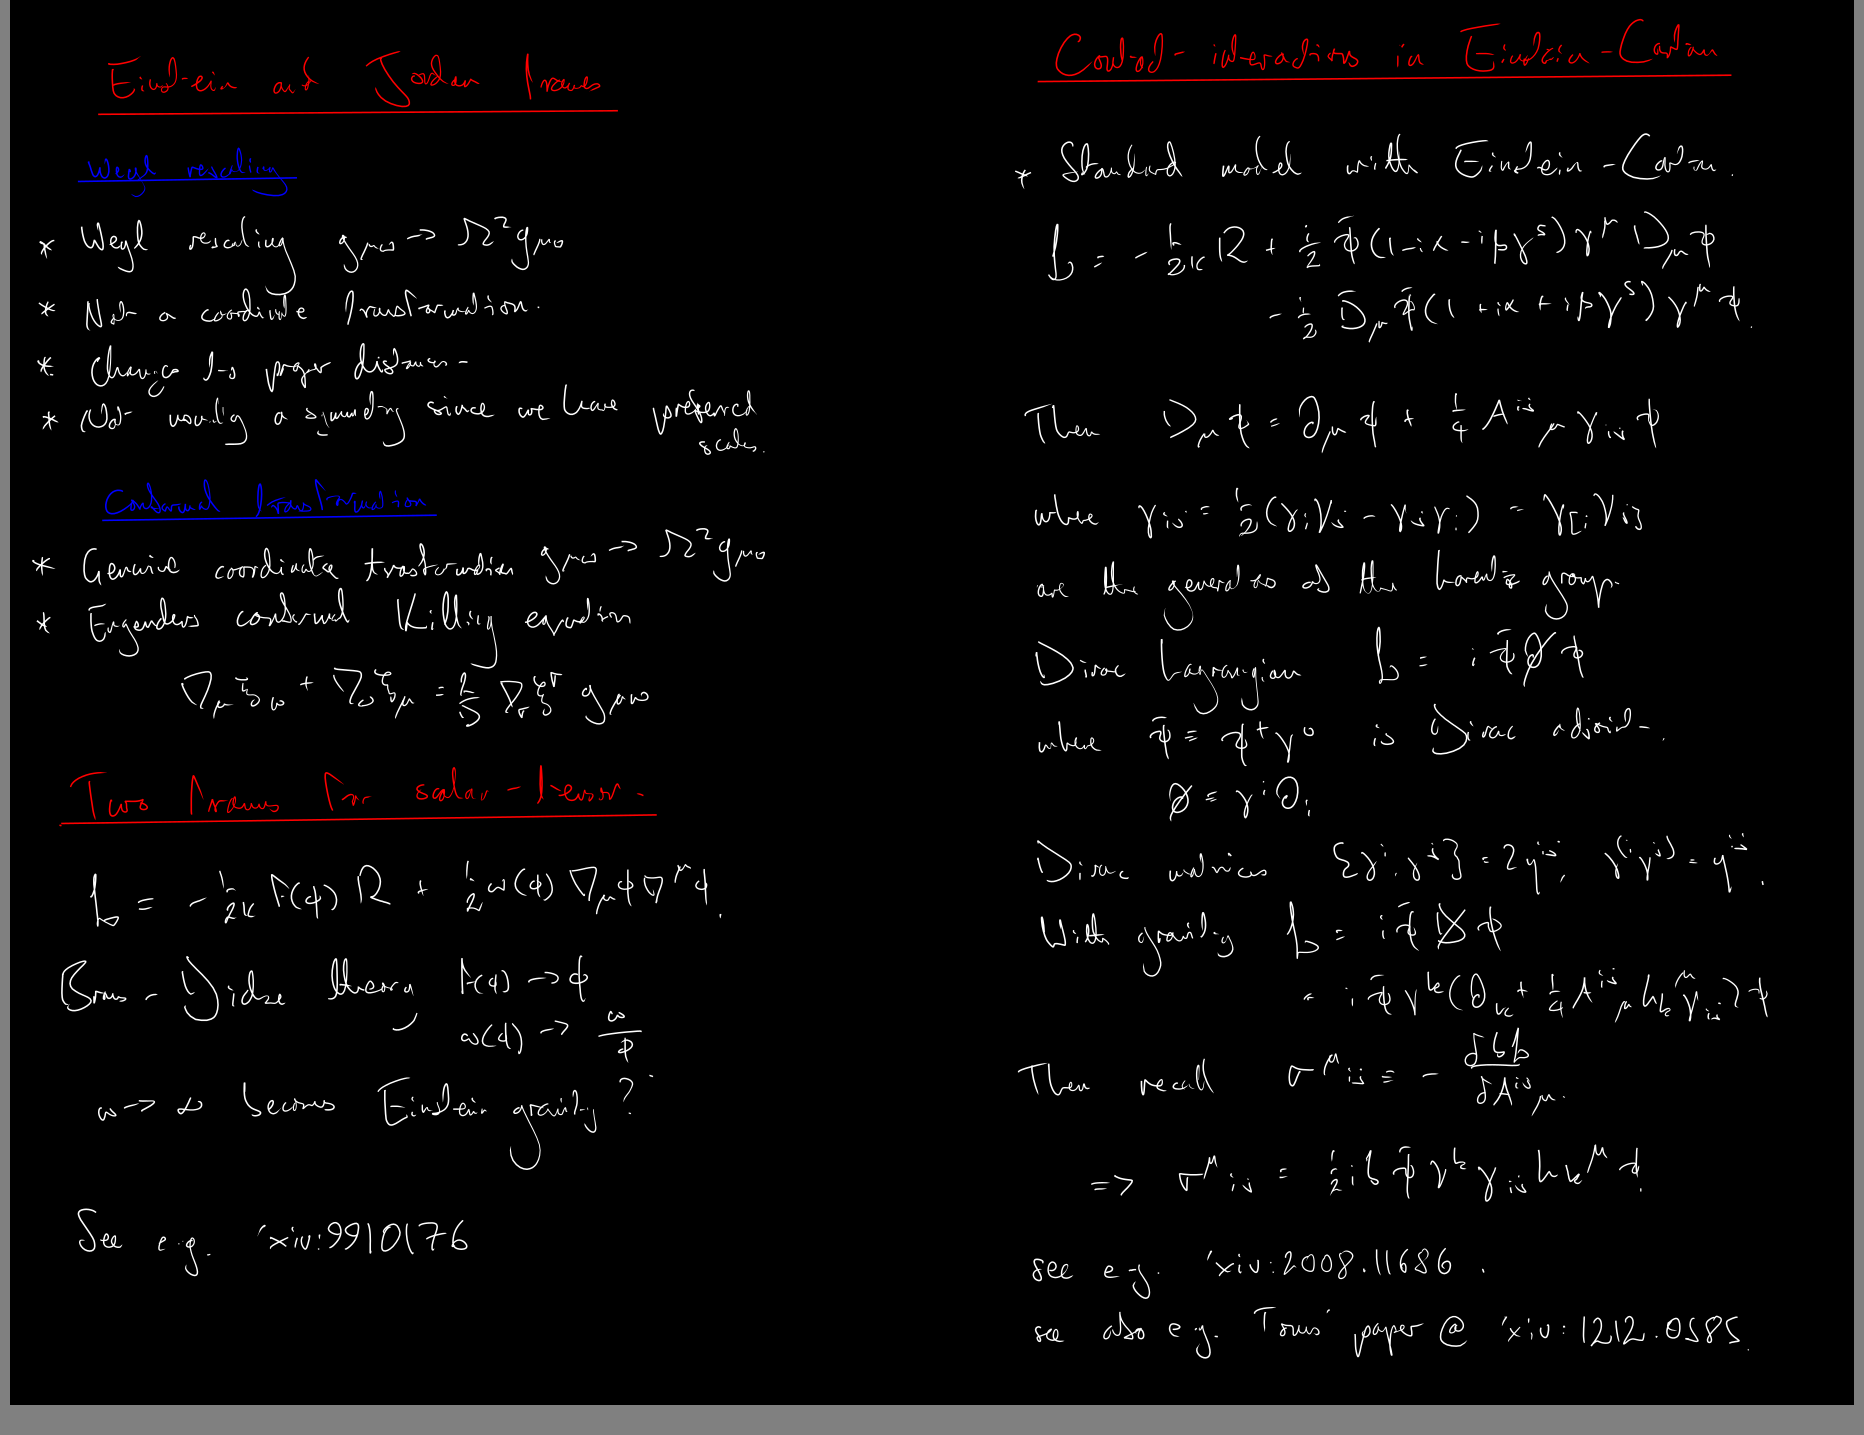 Einstein and Jordan frames
Weyl rescaling
* Weyl rescaling g_{μν} → Ω² g_{μν}
* Not a coordinate transformation.
* Changes the proper distances.
* Not usually a symmetry since we have preferred
scales.
Conformal transformation
* Genuine coordinate transformation g_{μν} → Ω² g_{μν}
* Engenders conformal Killing equation
∇_μ ξ_ν + ∇_ν ξ_μ = 2/D ∇_σ ξ^σ g_{μν}
Two frames for scalar-tensor.
L = -1/2κ f(φ) R + 1/2 ω(φ) ∇_μ φ ∇^μ φ.
Brans-Dicke theory f(φ) → φ
ω(φ) → ω/φ
ω → ∞ becomes Einstein gravity?
See e.g. 'xiv:9910176
Contact interactions in Einstein-Cartan
* Standard model with Einstein-Cartan.
L = -1/2κ R + i/2 ψ̄(1-iα-iβγ⁵)γ^μ D_μ ψ
- i/2 D̄_μ ψ̄(1+iα+iβγ⁵)γ^μ ψ.
Then D_μ ψ = ∂_μ ψ + 1/4 A^{ij}_μ γ_{ij} ψ
where γ_{ij} = 1/2(γ_i γ_j - γ_j γ_i) = γ_{[i} γ_{j]}
are the generators of the Lorentz group.
Dirac Lagrangian L = i ψ̄ ∂̸ ψ
where ψ̄ ≡ ψ†γ⁰ is Dirac adjoint.
∂̸ ≡ γ^i ∂_i
Dirac matrices {γ^i, γ^j} = 2η^{ij}, γ^{(i}γ^{j)} = η^{ij}.
With gravity L = i ψ̄ D̸ ψ
= i ψ̄ γ^k(∂_k + 1/4 A^{ij}_μ h_k^μ γ_{ij}) ψ
Then recall σ^μ_{ij} ≡ - δbL/δA^{ij}_μ.
=> σ^μ_{ij} = 1/2 i b ψ̄ γ^k γ_{ij} h_k^μ ψ.
see e.g. 'xiv:2008.11686.
see also e.g. Toms' paper @ 'xiv:1212.0585.